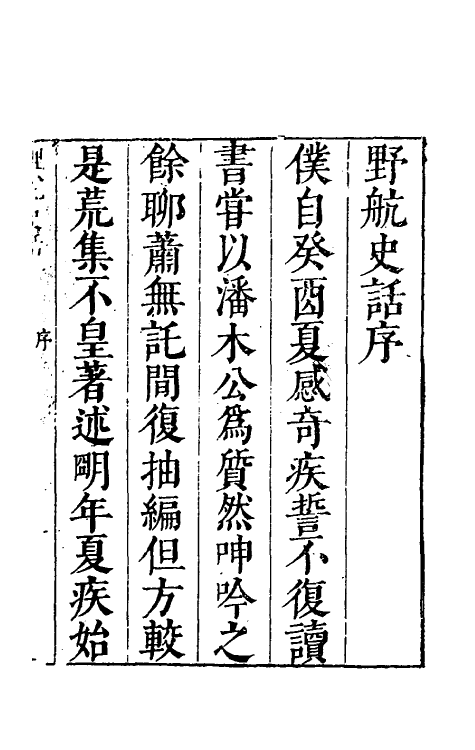 野航史話序
僕自癸酉夏感奇疾誓不復讀
書甞以潘木公爲質然呻吟之
餘聊蕭無託間復抽編但方較
是荒集不皇著述朙年夏疾始
序